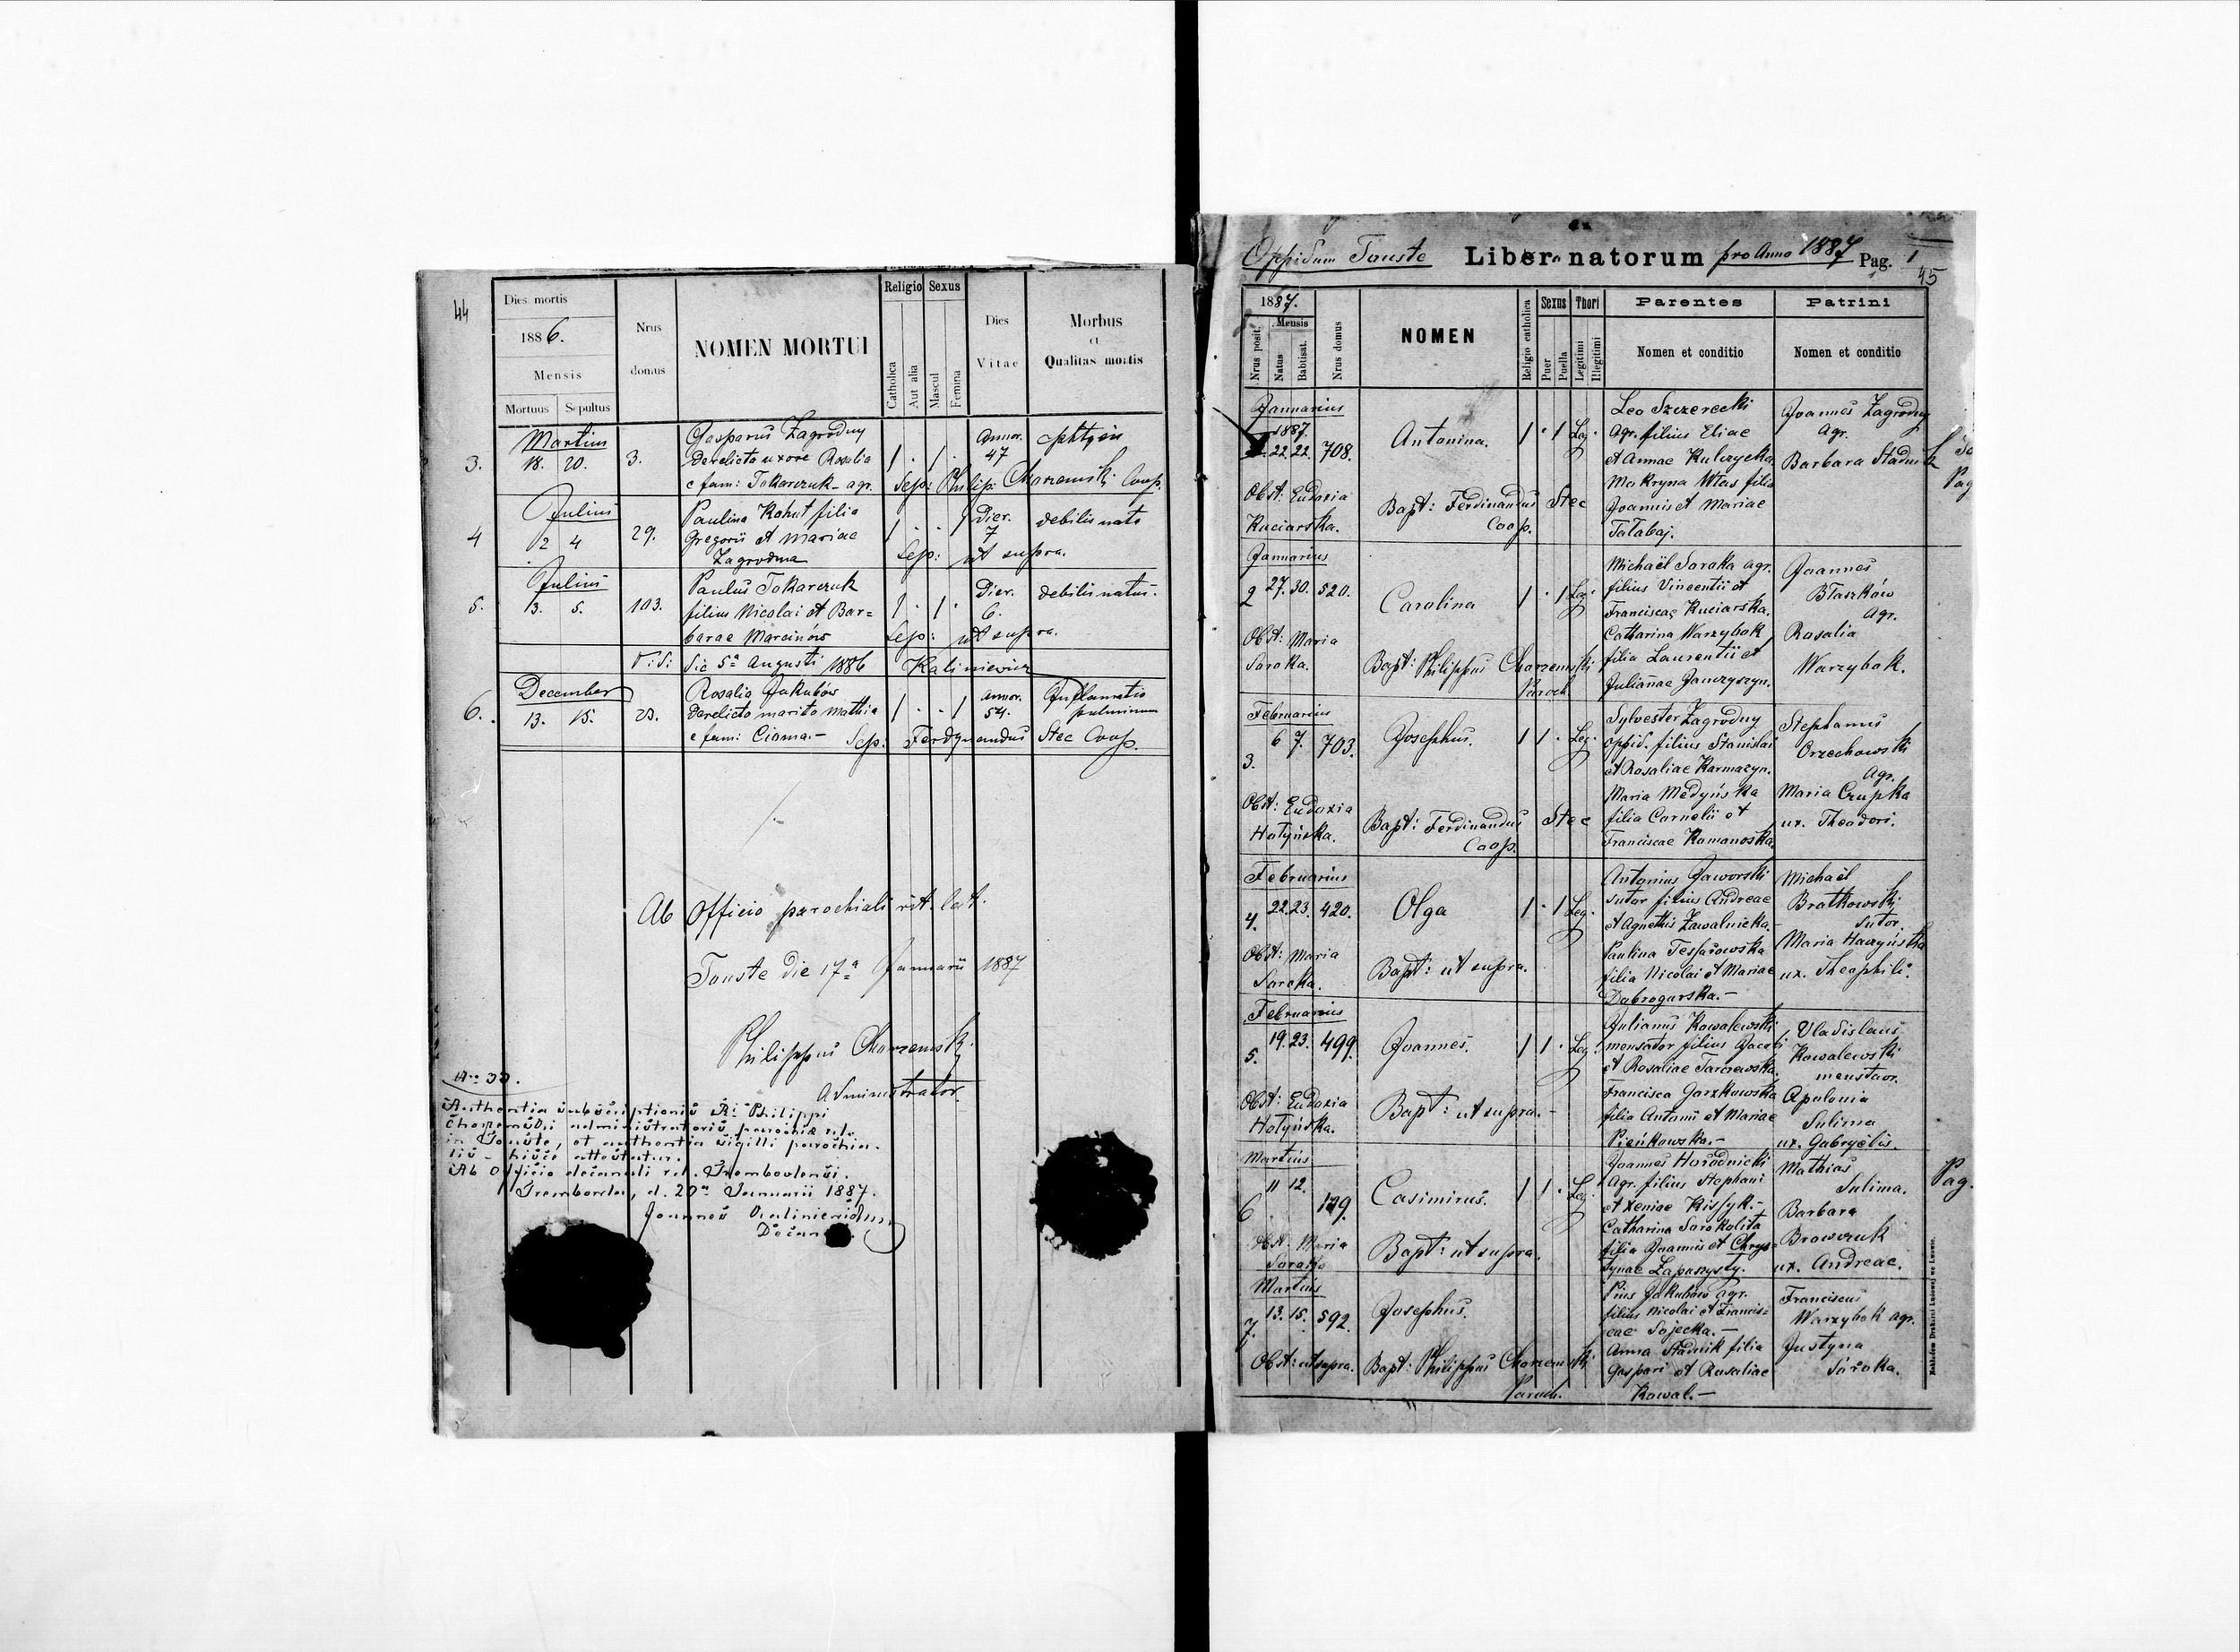 44
Dies mortis
1886.
Mensis
Mortuus Sepultus
Nrus domus
NOMEN MORTUI
Religio Sexus
Catholica
Aut alia
Mascul
Femina
Dies Vitae
Morbus
et
Qualitas mortis
Martius
3. 18. 20. 3. Gasparus Zagrodny
derelicta uxore Rosalia
c fam: Tokarczuk - agr.
1 . 1 . Annor. 47
Sep: Philip: Chorzemski Coop.
Julius
4 2 4 29. Paulina Kohut filia
Gregorii et Mariae
Zagrodna
1 . . 1 Dier. 7 debilis nata
Sep: ut supra.
Julius
5. 3. 5. 103. Paulus Tokarczuk
filius Nicolai et Bar=
barae Marcinów
1 . 1 . Dier. 6. debilis natus.
Sep: ut supra.
Vidi die 5ª Augusti 1886 Kaliniewicz
December
6. 13. 15. 23. Rosalia Jakubów
derelicto marito Mathia
e fam: Cioma.-
1 . . 1 Annor. 54. Inflamatio
pulminum
Sep: Ferdynandus Stec Coop.
Ab Officio parochiali rit. lat.
Touste die 17ª Januarii 1887
Philippus Chorzemski
Administrator.
Authentia subscriptionis Ri Philippi
Chorzemski administratoris parochiæ r. l.
in Touste, et authentia sigilli parochia-
lis - hisce attestatur.
Ab Officio decanali rit. Trembovlensi.
Trembovla, d. 20ª Januarii 1887.
Joannes Kaliniewicz
Oppidum Touste Liber natorum pro Anno 1887 Pag. 1
45
1887.
Nrus posit.
Mensis
Natus
Babtisat.
Nrus domus
NOMEN
Religio catholica
Sexus
Puer
Puella
Thori
Legitimi
Illegitimi
Parentes
Nomen et conditio
Patrini
Nomen et conditio
Januarius
1887.
22. 22. 708. Antonina. 1 . 1 Leg.
Obst: Eudoxia
Kuciarska.
Bapt: Ferdinandus Stec
Coop.
Leo Szczerecki
Agr. filius Eliae
et Annae Kulczycka.
Makryna Wtas filia
Joannis et Mariae
Tatabaj.
Joannes Zagrodny
Agr.
Barbara Stadnik
Januarius
2 27. 30. 520. Carolina 1 . 1 Leg.
Obst: Maria
Soroka.
Bapt: Philippus Chorzemski
Paroch.
Michaël Soroka agr.
filius Vincentii et
Franciscae Kuciarska.
Catharina Warzybok
filia Laurentii et
Juliannae Janczyszyn.
Joannes
Błaszków
Agr.
Rosalia
Warzybok.
Februarius
3. 6 7. 703. Josephus. 1 1 . Leg.
Obst: Eudoxia
Hotyńska.
Bapt: Ferdinandus Stec
Coop.
Sylvester Zagrodny
oppid. filius Stanislai
et Rosaliae Karmazyn.
Maria Medyńska
filia Cornelii et
Franciscae Romanoska.
Stephanus
Orzechowski
Agr.
Maria Czupka
ux. Theodori.
Februarius
4. 22. 23. 420. Olga 1 . 1 Leg.
Obst: Maria
Soroka.
Bapt: ut supra.
Antonius Jaworski
sutor filius Andreae
et Agnethis Zawalnicka.
Paulina Teslarowska
filia Nicolai et Mariae
Dobrogorska.-
Michaël
Bratkowski
sutor.
Maria
ux. Theophili.
Februarius
5. 19. 23. 499. Joannes. 1 1 . Leg.
Obst: Eudoxia
Hotyńska.
Bapt: ut supra.-
Julianus Kowalewski
mensator filius Jacobi
et Rosaliae Tarczewska.
Francisca Gorzkowska
filia Antonii et Mariae
Pieńkowska.-
Vladislaus
Kowalewski
Apolonia
Sulima
ux. Gabryëlis.
Martius
6 11 12. 129. Casimirus. 1 1 . Leg.
Obst. Maria
Soroka
Bapt: ut supra.
Joannes Horodnicki
Agr. filius Stephani
et Xeniae Kissyk.-
Catharina Sorokolita
filia Joannis et Chrys=
tynae Łapuszysty.
Mathias
Sulima.
Barbara
Browczuk
ux. Andreae.
Martius
7. 13. 15. 592. Josephus.
Obst: ut supra.
Bapt: Philippus Chorzemski
Paroch.
Pius Jakubów agr.
filius Nicolai et Francis=
cae Sojecka.-
Anna Stadnik filia
Gaspari et Rosaliae
Kowal.-
Franciscus
Warzybok agr.
Justyna
Soroka.
Pag.
Nakładem Drukarni Ludowej we Lwowie.